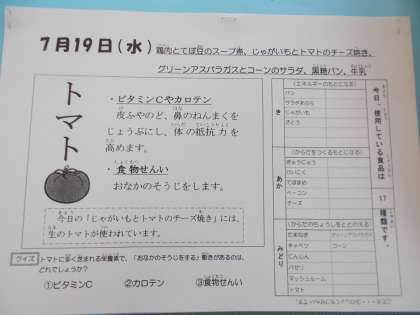 7月19日(水)
鶏肉とてぼ豆のスープ煮、じゃがいもとトマトのチーズ焼き、
グリーンアスパラガスとコーンのサラダ、黒糖パン、牛乳
トマト
・ビタミンCやカロテン
皮ふやのど、鼻のねんまくを
じょうぶにし、体の抵抗力を
高めます。
・食物せんい
おなかのそうじをします。
今日の「じゃがいもとトマトのチーズ焼き」には、
生のトマトが使われています。
今日、使用している食品は
17
種類です。
き
(エネルギーのもとになる)
パン
じゃがいも
さとう
あか
(からだをつくるもとになる)
ぎゅうにゅう
とりにく
てぼまめ
ベーコン
チーズ
みどり
(からだのちょうしをととのえる)
たまねぎ
グリーンアスパラガス
キャベツ
コーン
にんじん
パセリ
マッシュルーム
トマト
クイズ
トマトに多く含まれる栄養素で、「おなかのそうじをする」働きがあるのは、
どれでしょうか?
①ビタミンC ②カロテン ③食物せんい